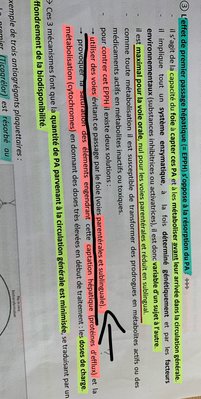 ③ L'effet de premier passage hépatique (= EPPH) s'oppose à la résorption du PA : +++
Il s'agit de la capacité du foie à capter ces PA et à les métaboliser avant leur arrivée dans la circulation générale.
Il implique tout un système enzymatique, à la fois déterminé génétiquement et par les facteurs
environnementaux (substances inhibitrices ou activatrices), il est donc variable d'un sujet à l'autre.
Il est maximal pour la voie orale, nul pour les voies parentérales et réduit en sublingual.
Comme toute métabolisation il est susceptible de transformer des prodrogues en métabolites actifs ou des
médicaments actifs en métabolites inactifs ou toxiques.
Pour contrer cet EPPH il existe deux solutions :
→ utiliser des voies évitant ce passage par le foie (voies parentérales et sublinguale)
→ provoquer la saturation des éléments engendrant cette captation hépatique (protéines d'efflux) et la
métabolisation (cytochromes) en donnant des doses très élevées en début de traitement : les doses de charge.
Ces 3 mécanismes font que la quantité de PA parvenant à la circulation générale est minimisée, se traduisant par un
effondrement de la biodisponibilité.
trois antiagrégants plaquettaires :
résorbé au